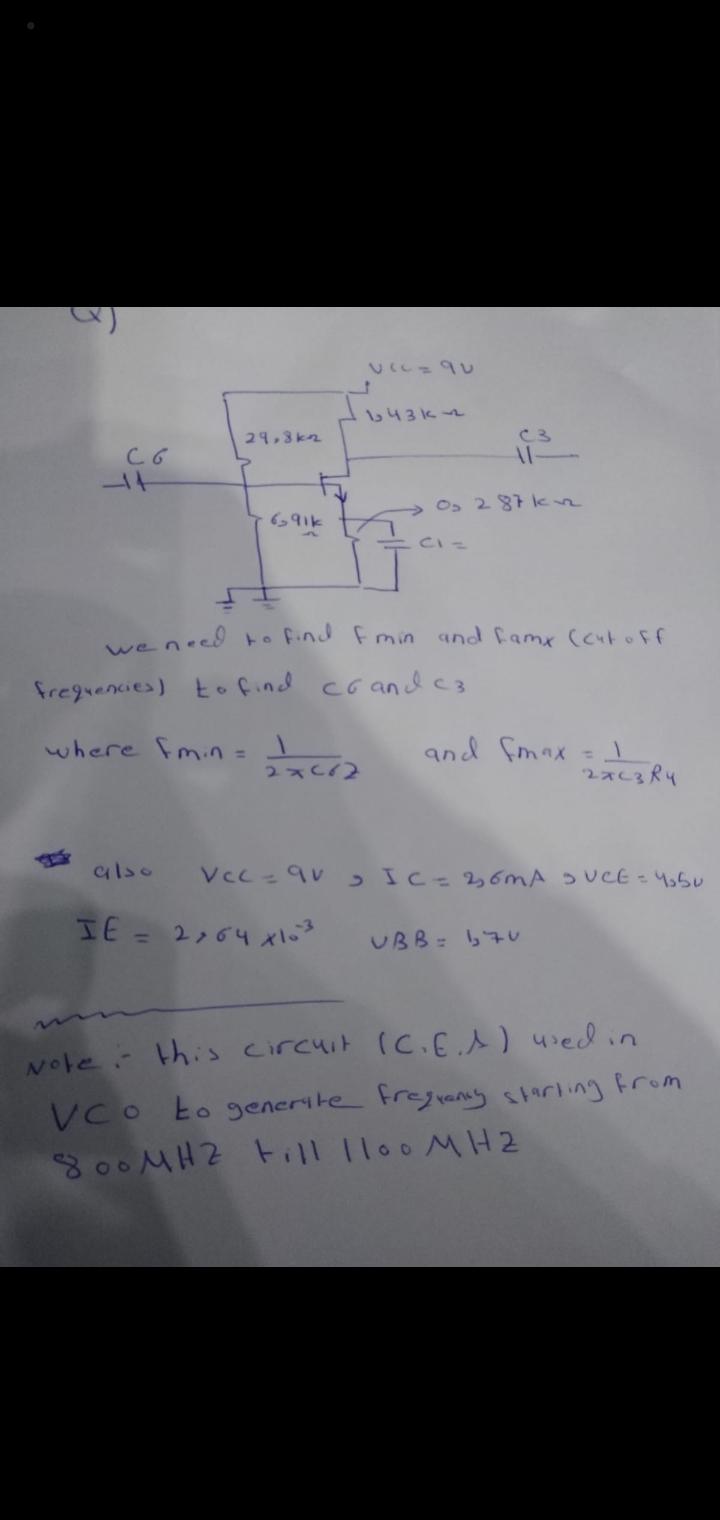 Q)
VCC = 9V
1,43kΩ
29,8kΩ
C3
C6
6,91k
Ω
0, 287kΩ
C1 =
we need to find Fmin and Famx (cut off
frequencies) to find C6 and C3
where Fmin = 1/2πC6Z and Fmax = 1/2πC3R4
also VCC = 9V , IC = 2,6mA , VCE = 4,5V
IE = 2,64 x10^-3 VBB = 1,7V
Note :- this circuit (C.E.A) used in
VCO to generate frequency starting from
800MHZ till 1100MHZ